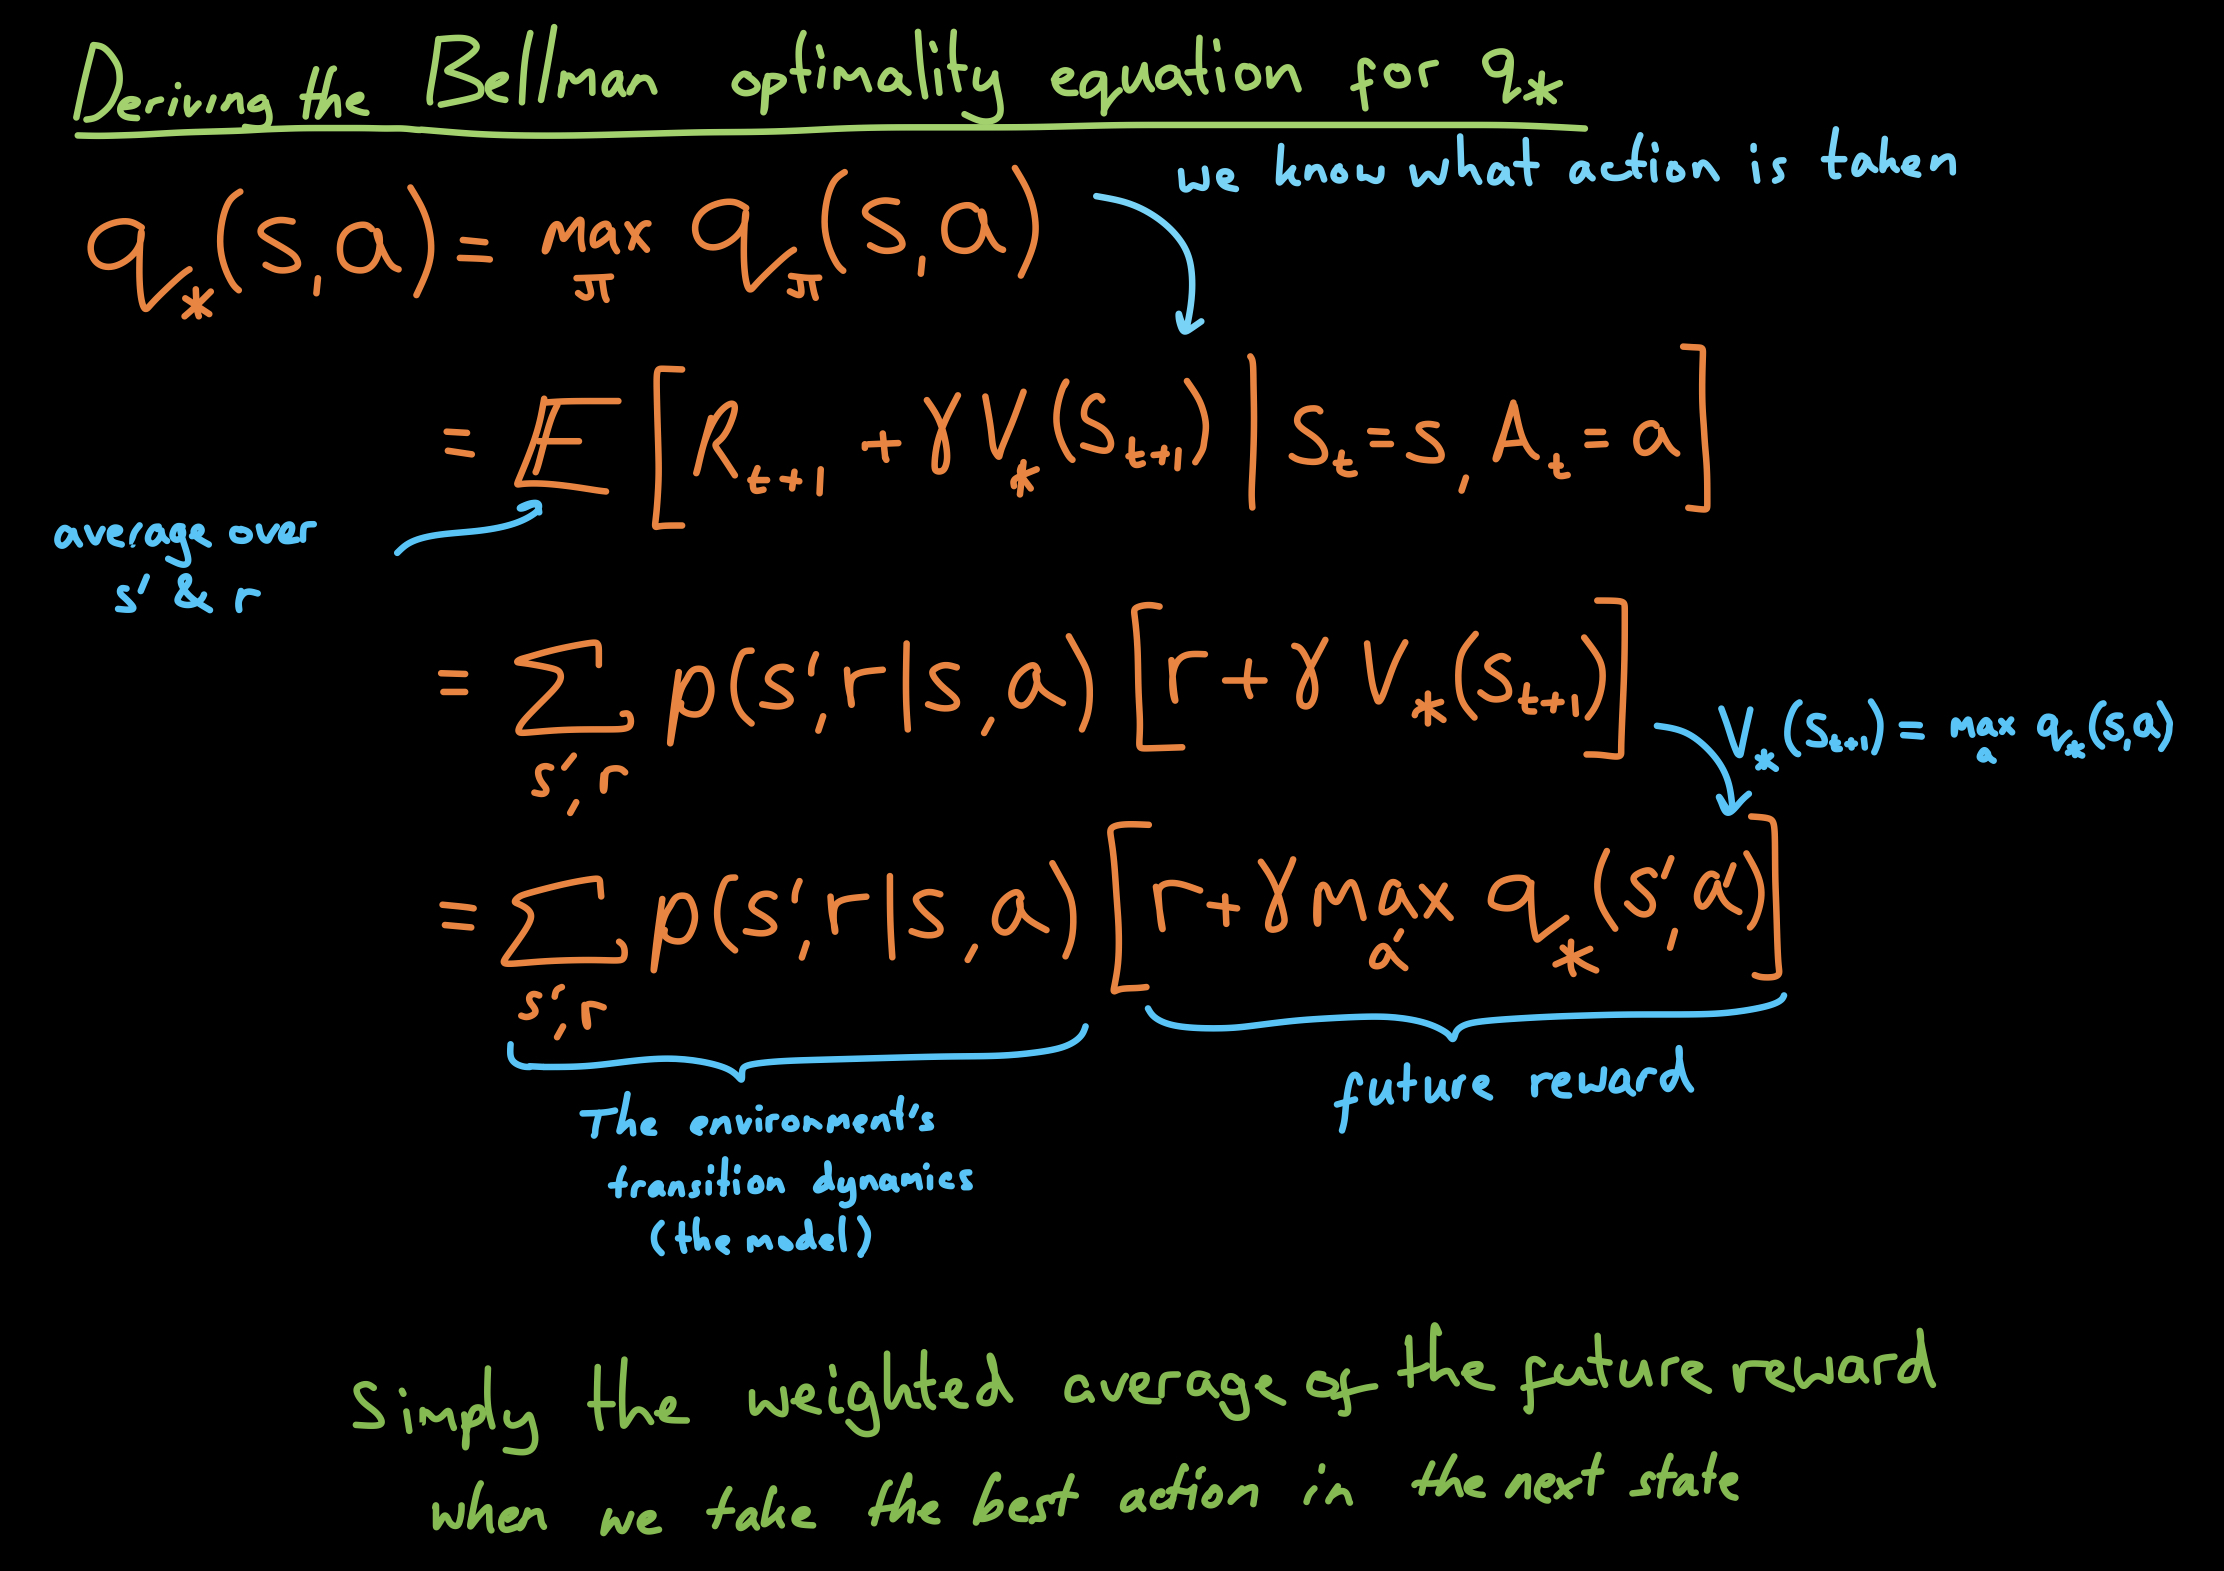 Deriving the Bellman optimality equation for q_*
we know what action is taken
q_*(s,a) = max_π q_π(s,a)
= E[R_{t+1} + γ V_*(S_{t+1}) | S_t = s, A_t = a]
average over
s' & r
= Σ_{s',r} p(s',r|s,a) [r + γ V_*(S_{t+1})]
V_*(S_{t+1}) = max_a q_*(s,a)
= Σ_{s',r} p(s',r|s,a) [r + γ max_{a'} q_*(s',a')]
future reward
The environment's
transition dynamics
(the model)
Simply the weighted average of the future reward
when we take the best action in the next state